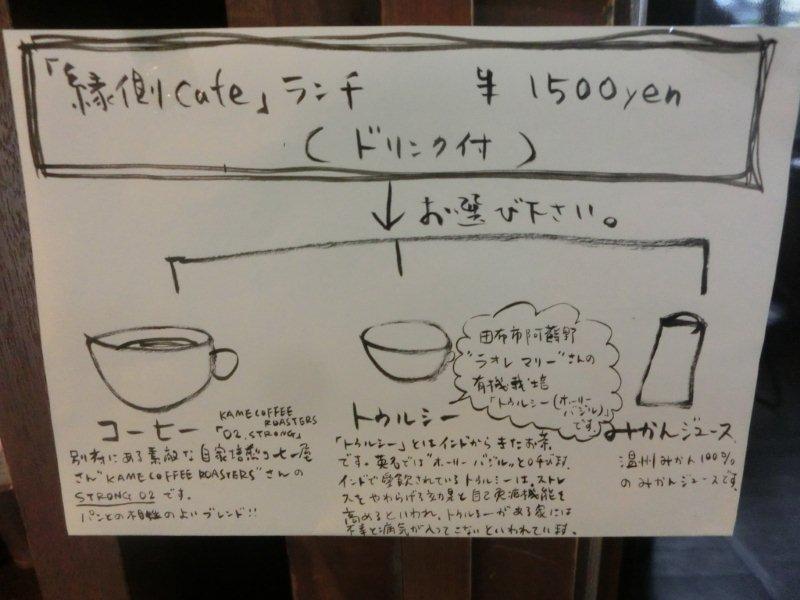 「縁側cafe」ランチ ¥ 1500yen
(ドリンク付)
お選び下さい。
コーヒー
KAMECOFFEE
ROASTERS
「02.STRONG」
別府にある素敵な自家焙煎コーヒー屋
さん"KAMECOFFEE ROASTERS"さんの
STRONG 02 です。
パンとの相性のよいブレンド!!
トゥルシー
由布市阿蘇野
"ラオレ マリー"さんの
有機栽培
「トゥルシー(ホーリー
バジル)」
です。
「トゥルシー」とはインドからきたお茶
です。英名では"ホーリーバジル"と呼びます。
インドで愛飲されているトゥルシーは、ストレ
スをやわらげる効果と自己 機能を
高めるといわれ、トゥルシーがある家には
不幸と病気が入ってこないといわれています。
みかんジュース
温州みかん100%
のみかんジュースです。